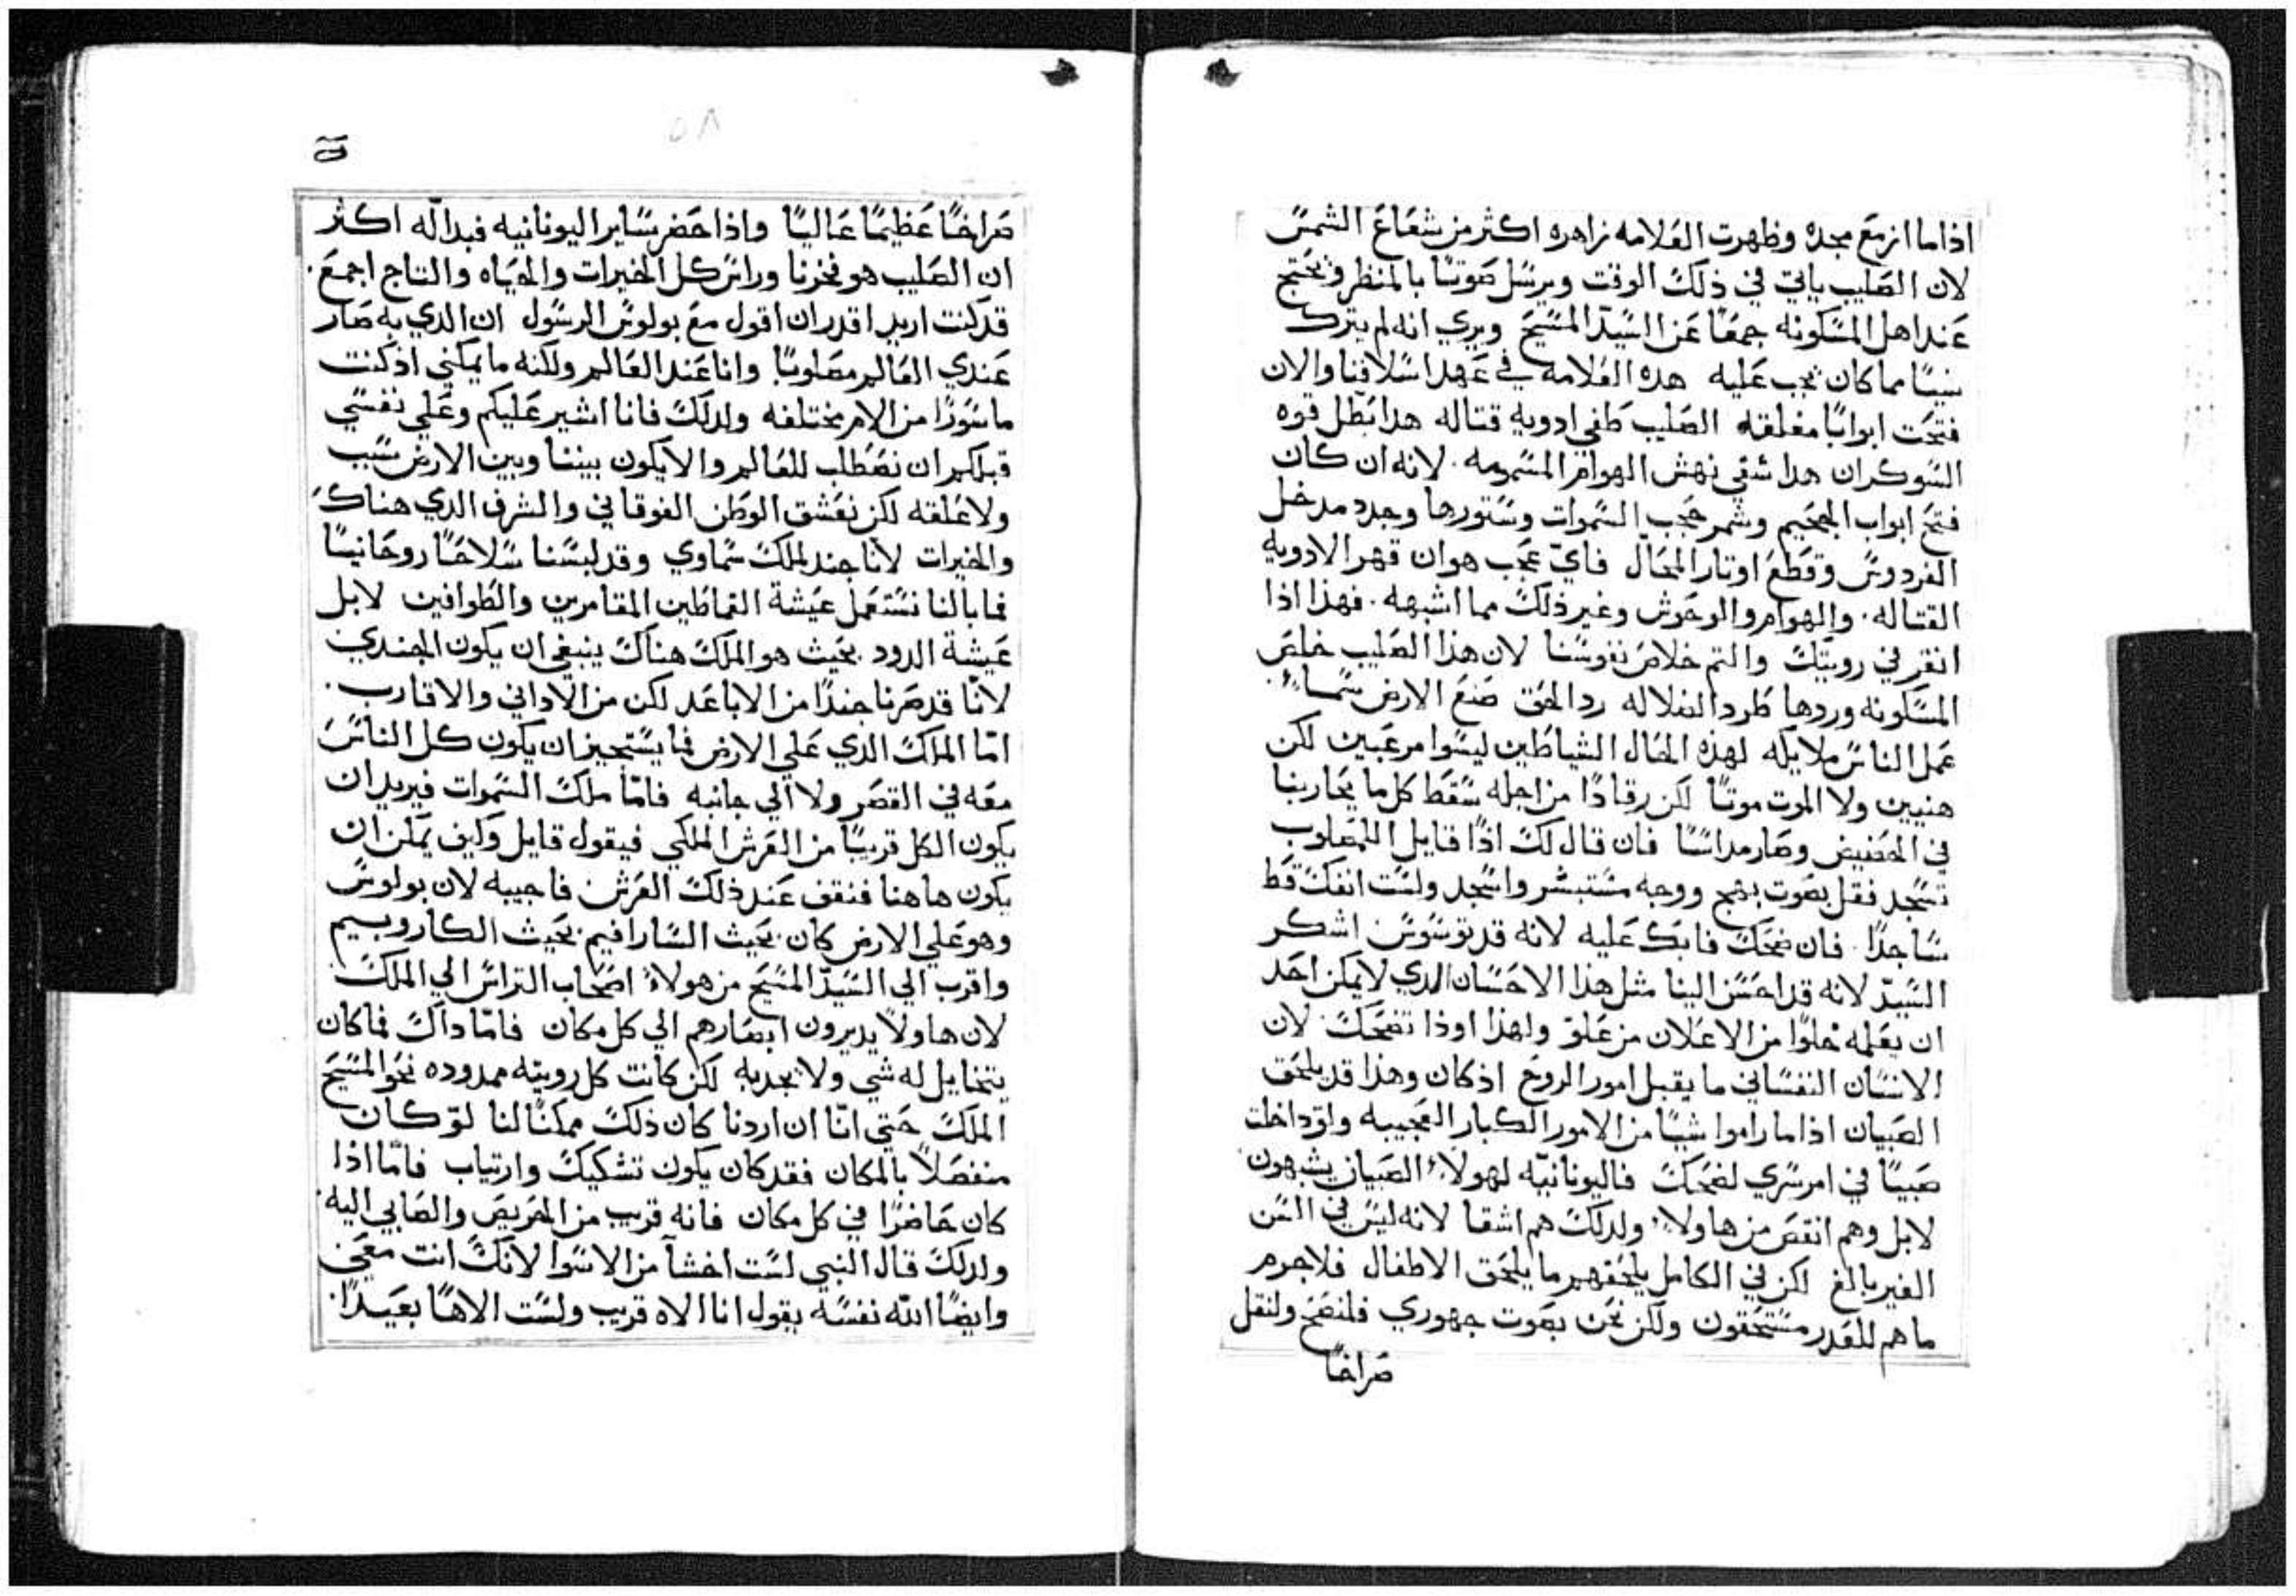 اذا ما ازمع مجده وظهرت العلامه زاهره اكثر من شعاع الشمس
لان الصليب ياتي في ذلك الوقت ويرسل صوتًا بالمنظر ويحتج
عند اهل المسكونه جمعًا عن السيّد المسيح ويري انه لم يترك
شيئًا مما كان يجب عليه هذه العلامه في عهد اسلافنا والان
فتحت ابوابًا مغلقه الصليب طفي ادويه قتاله هدا بطّل قوه
الشوكران هدا شفي نهش الهوام المسمومه. لانه ان كان
فتح ابواب الجحيم وشمر حجب السموات وستورها وجدد مدخل
الفردوس وقطع اوتار المحال فايّ عجب هو ان قهر الادويه
القتاله. والهوام والوحوش وغير ذلك مما اشبهه. فهذا اذا
انقر في رويتك والتم خلاص نفوسنا لان هذا الصليب خلص
المسكونه وردها طرد الضلاله رد الحق صنع الارض سماءً.
عمل الناس ملايكه لهذه الحال الشياطين ليسوا مرعبين لكن
هنيين ولا الموت موتًا لكن رقادًا من اجله سقط كل ما يحاربنا
في الحضيض وصار مداسًا فان قال لك اذًا قايل اللمصلوب
تسجد فقل بصوت بهج ووجه مستبشر واسجد ولست انفك قط
ساجدًا. فان ضحك فابك عليه لانه قد توسوس اشكر
السيّد لانه قد احسن الينا مثل هذا الاحسان الدي لا يمكن احد
ان يعلمه خلوًا من الاعلان من علو ولهذا اوذا تضحك. لان
الانسان النفساني ما يقبل امور الروح اذ كان وهذا قد يلحق
الصبيان اذا ما راموا شيئًا من الامور الكبار العجيبه ولو داخلت
صبيًا في امر سري لضحك فاليونانيّه لهولاءِ الصبيان يشبهون.
لابل وهم انقص من هاولاءِ ولدلك هم اشقا لانه ليس في السن
الغير بالغ لكن في الكامل يلحقهم ما يلحق الاطفال فلا جرم
ما هم للعدر مستحقون ولكن نحن بصوت جهوري فلنصح ولنقل
صراخًا
٥٨
صراخًا عظيمًا عاليًا واذا حضر ساير اليونانيه فبدالّه اكثر
ان الصليب هو فخرنا وراس كل الخيرات والحياه والتاج اجمع.
قد كنت اريد اقدر ان اقول مع بولوس الرسول ان الدي به صار
عندي العالم مصلوبًا وانا عند العالم ولكنه ما يمكني اذ كنت
ماسورًا من الام مختلفه ولدلك فانا اشير عليكم وعلي نفسي
قبلكم ان نصطلب للعالم والا يكون بيننا وبين الارض سبب
ولا علقه لكن نعشق الوطن الفوقاني والشرف الدي هناك
والخيرات لانّا جند لملك سماوي وقد لبسنا سلاحًا روحانيًا
فما بالنا نستعمل عيشة القماطين المقامرين والطوافين لابل
عيشة الدود. بحيث هو الملك هناك ينبغي ان يكون الجندي
لانّا قد صرنا جندًا من الاباعد لكن من الاداني والاقارب.
امّا الملك الدي علي الارض فما يستجيز ان يكون كل الناس
معه في القصر ولا الي جانبه فامّا ملك السموات فيريد ان
يكون الكل قريبًا من العرش الملكي فيقول قايل وكيف يمكن ان
يكون هاهنا فنقف عند ذلك العرش فاجيبه لان بولوس
وهو علي الارض كان. بحيث السارافيم. بحيث الكاروبيم
واقرب الي السيّد المسيح من هولاءِ اصحاب التراس الي الملك
لان هاولاءِ يديرون ابصارهم الي كل مكان فامّا داك فما كان
يتخايل له شي ولا يجدبه لكن كانت كل رويته ممدوده نحو المسيح
الملك حتي انّا ان اردنا كان ذلك ممكنًا لنا لو كان
منفصلًا بالمكان فقد كان يكون تشكيك وارتياب فامّا اذا
كان حاضرًا في كل مكان فانه قريب من الحريص والصابي اليه.
ولدلك قال النبي لست اخشآ من الاسوا لانك انت معي
وايضًا اللّه نفسه يقول انا الاه قريب ولست الاهًا بعيدًا.